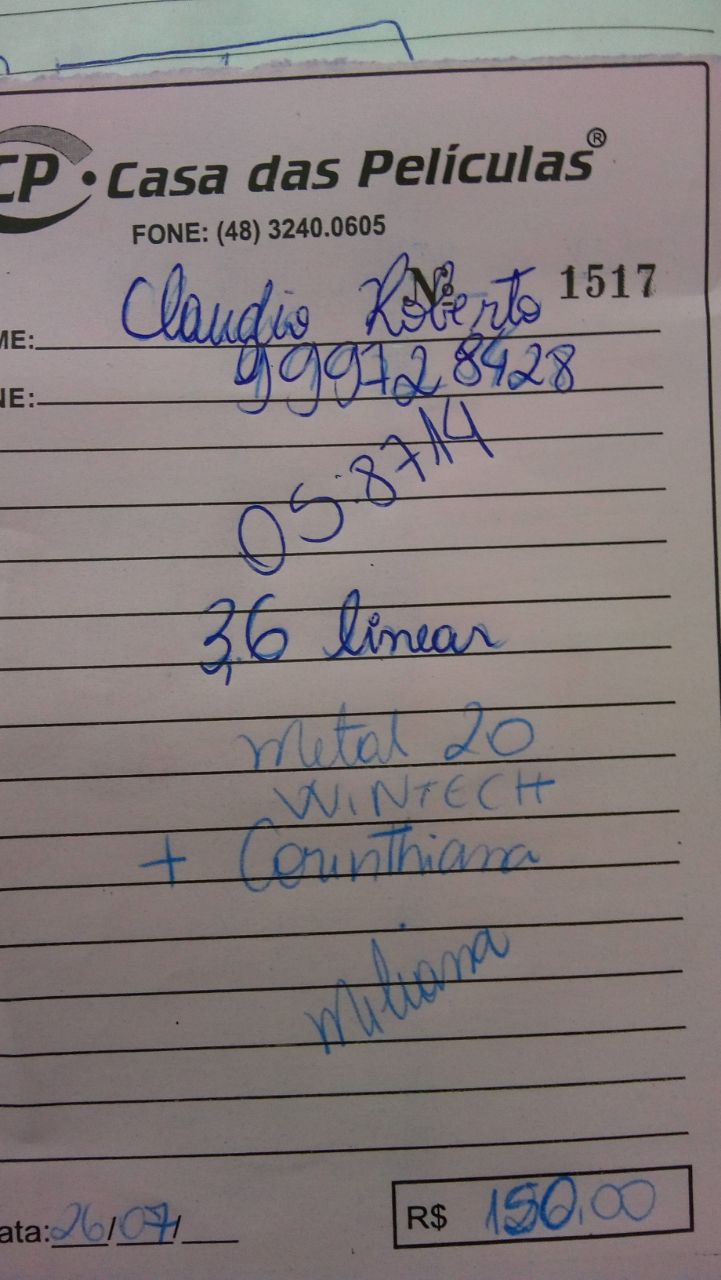 CP • Casa das Películas®
FONE: (48) 3240.0605
Nº 1517
ME: Claudio Roberto
NE: 999728428
05.8714
3,6 linear
metal 20
WINTECH
+ Corinthiana
miliana
ata: 26/07/___ R$ 150,00